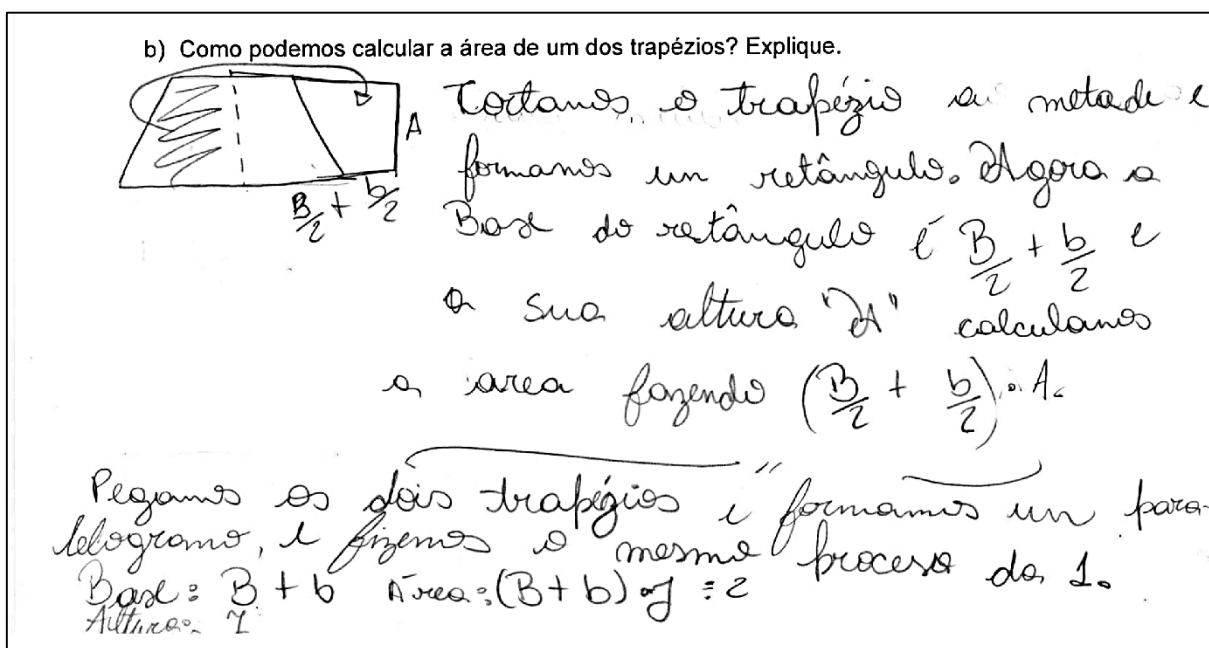 b) Como podemos calcular a área de um dos trapézios? Explique.
A
B/2 + b/2
Cortamos o trapézio a metade e
formamos um retângulo. Agora a
Base do retângulo é B/2 + b/2 e
a sua altura "A" calculamos
a area fazendo (B/2 + b/2) . A.
Pegamos os dois trapézios e formamos um para-
lelogramo, e fizemos o mesmo processo da 1.
Base: B + b Area: (B + b) . ÷ 2
Altura: